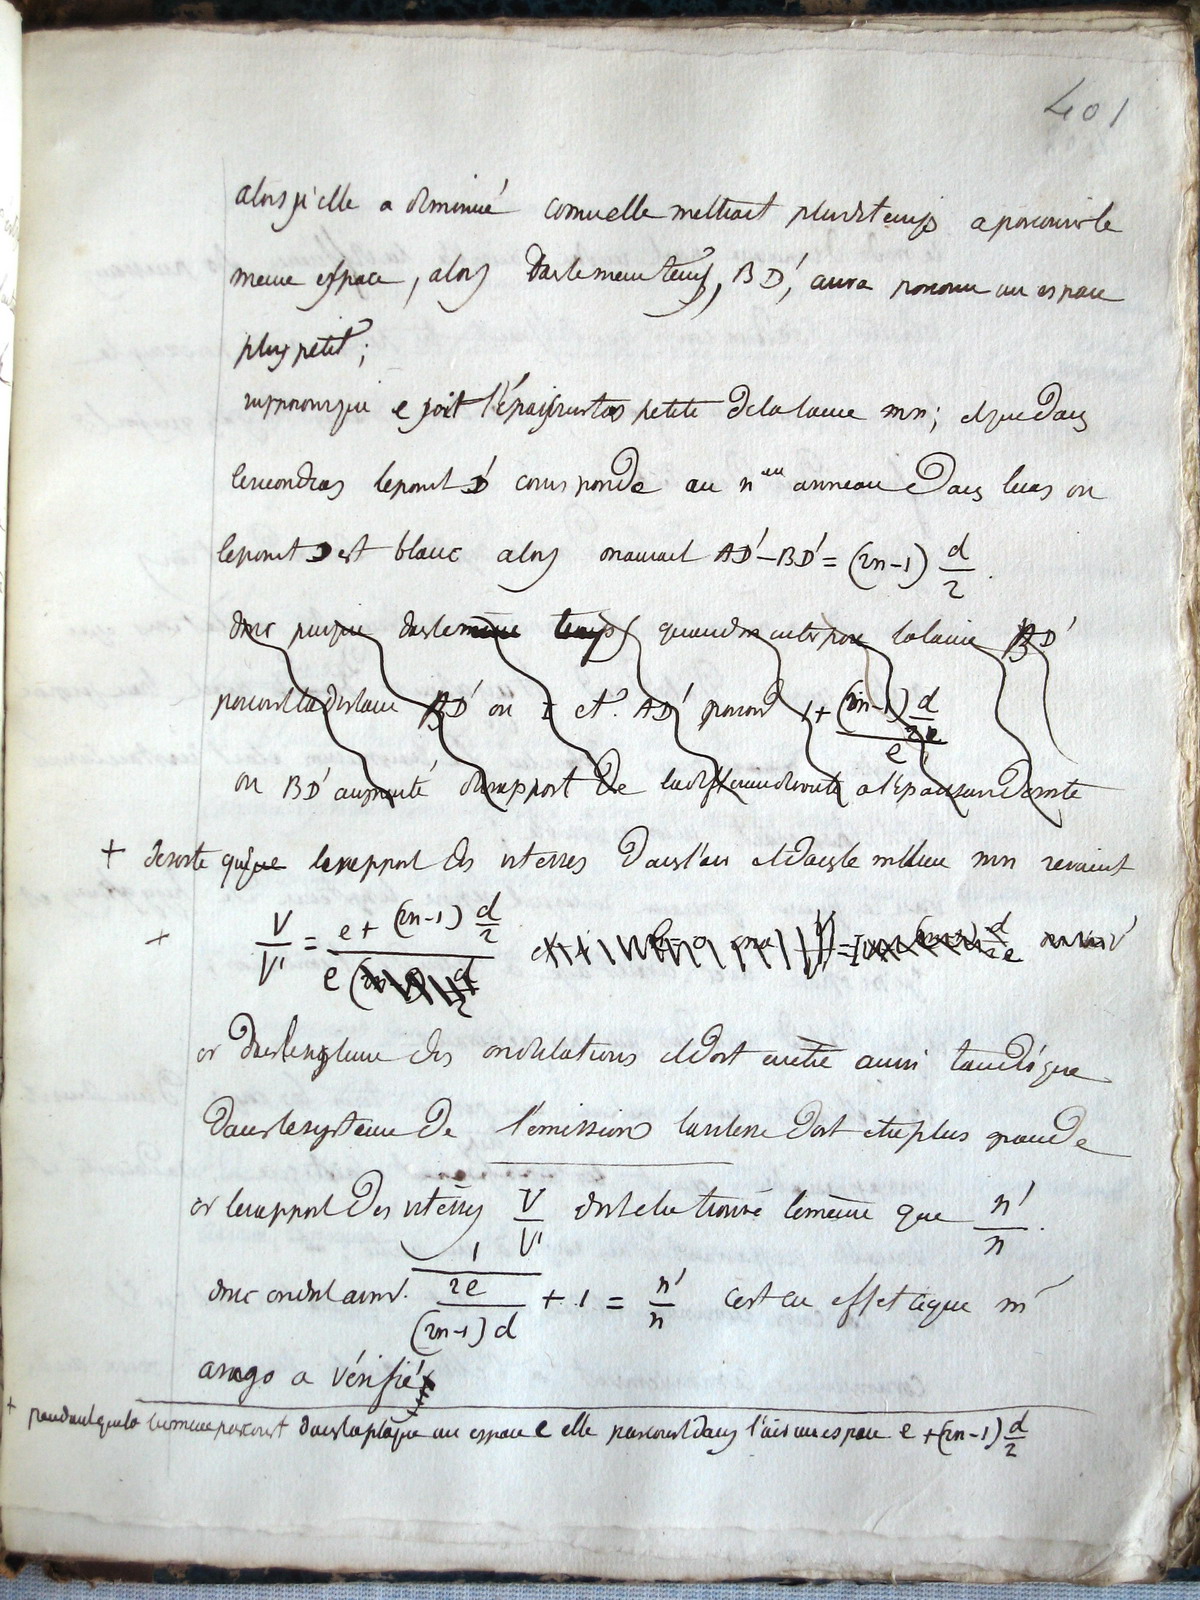 401
alors si elle a diminué comme elle mettrait plus de temps a parcourir le
meme espace, alors dans le meme temps, BD', aura parcouru un espace
plus petit;
supposons que e soit l'épaisseur tres petite de la lame mn; et que dans
ce cas le point D' corresponde au n anneau dans le cas ou
le point D est blanc alors on aurait AD'-BD' = (2n-1) d/2.
donc puisque dans le même temps quand on interpose la lame BD'
parcourt la distance BD' ou 1 et AD' parcourt 1 + (2n-1) d/2 / e
ou BD' augmenté du rapport de la difference de route a l'épaisseur de sorte
+ de sorte que le rapport des vitesses dans l'air et dans le milieu mn serait
+ V/V' = e + (2n-1) d/2 / e
or dans le systeme des ondulations il doit en etre ainsi tandis que
dans le systeme de l'émission la vitesse doit etre plus grande
or le rapport des vitesses V/V' doit etre trouvé le même que n'/n.
donc on doit avoir 1 / (2e / (2n-1) d) + 1 = n'/n c'est en effet ce que mr
arago a vérifié
+ pendant que la lumiere parcourt dans la plaque un espace e elle parcourt dans l'air un espace e + (2n-1) d/2